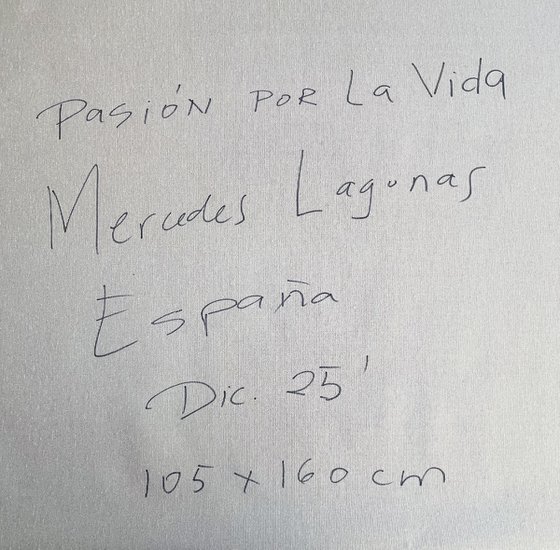 Pasión por la Vida
Mercedes Lagunas
España
Dic. 25'
105 x 160 cm